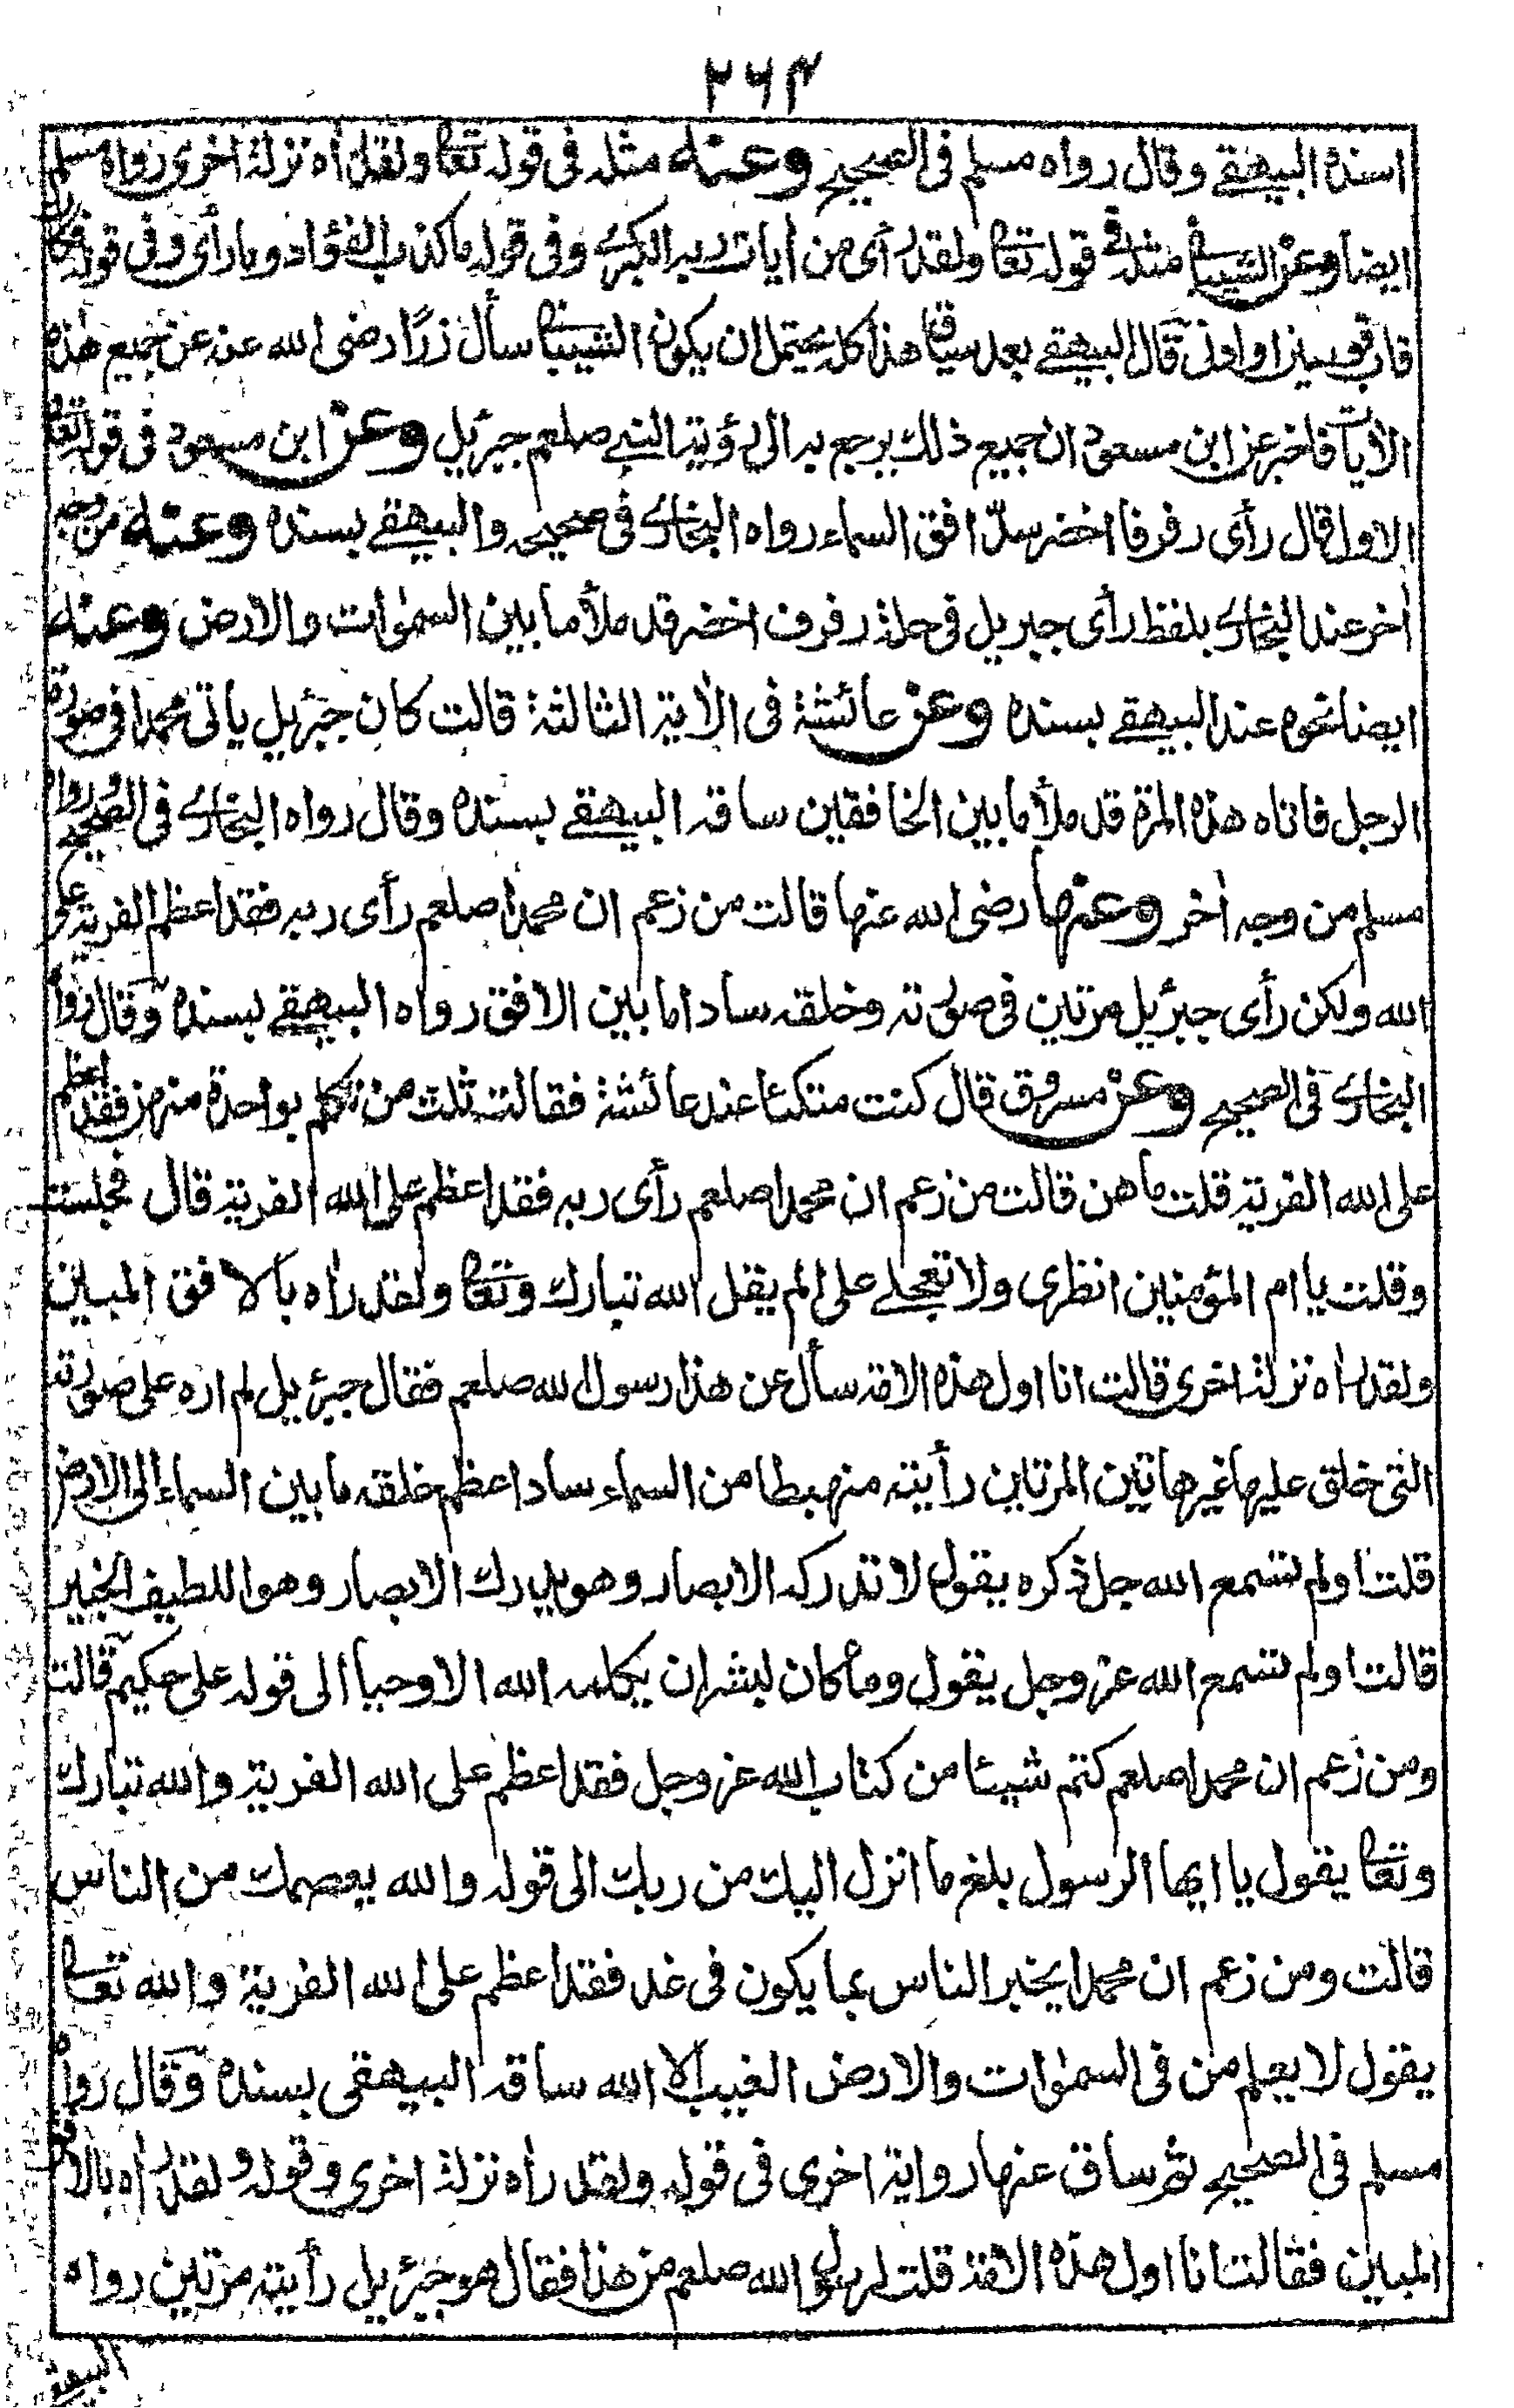 ٢٦٣
اسنده البيهقے وقال رواه مسلم فى الصحيح وعنه مثله فى قوله تعا ولقد راٰه نزلة اخرى رواه مسلم
ايضا وعن الشيبانى مثله فى قوله تعا ولقد رأى من اٰيات ربه الكبرے وفى قوله ماكذب الفؤاد وما رأى وفى قوله فكان
قاب قوسين او ادنى قال البيهقے بعد سياق هذا كله يحتمل ان يكون الشيبانى سأل زرًا رضى الله عنه عن جميع هذه
الاٰيات فاخبر عن ابن مسعود ان جميع ذلك يرجع به الى رؤية النبے صلعم جبرئيل وعن ابن مسعود فى قوله تعا
الاول قال رأى رفرفا اخضر سدّ افق السماء رواه البخارے فى صحيحه والبيهقے بسنده وعنه من وجه
اٰخر عند البخارے بلفظ رأى جبريل فى حلة رفرف اخضر قد ملأ ما بين السمٰوات والارض وعنه
ايضا نحوه عند البيهقے بسنده وعن عائشة فى الاٰية الثالثة قالت كان جبرئيل ياتى محمدا فى صورة
الرجل فاتاه هذه المرة قد ملأ ما بين الخافقين ساقه البيهقے بسنده وقال رواه البخارے فى الصحيح ورواه
مسلم من وجه اٰخر وعنها رضى الله عنها قالت من زعم ان محمدا صلعم رأى ربه فقد اعظم الفرية على
الله ولكن رأى جبرئيل مرتين فى صورته وخلقه سادا ما بين الافق رواه البيهقے بسنده وقال رواه
البخارے فى الصحيح وعن مسروق قال كنت متكئا عند عائشة فقالت ثلث من تكلم بواحدة منهن فقد اعظم
على الله الفرية قلت ما هن قالت من زعم ان محمدا صلعم رأى ربه فقد اعظم على الله الفرية قال فجلست
وقلت يا ام المؤمنين انظرى ولا تعجلے على الم يقل الله تبارك وتعا ولقد راٰه بالافق المبين
ولقد راٰه نزلة اخرى قالت انا اول هذه الامة سأل عن هذا رسول الله صلعم فقال جبرئيل لم اره على صورته
التى خلق عليها غير هاتين المرتين رأيته منهبطا من السماء سادا عظم خلقه ما بين السماء الى الارض
قلت اولم تسمع الله جل ذكره يقول لا تدركه الابصار وهو يدرك الابصار وهو اللطيف الخبير
قالت اولم تسمع الله عز وجل يقول وما كان لبشر ان يكلمه الله الا وحيا الى قوله على حكيم قالت
ومن زعم ان محمدا صلعم كتم شيئا من كتاب الله عز وجل فقد اعظم على الله الفرية والله تبارك
وتعا يقول يا ايها الرسول بلغ ما انزل اليك من ربك الى قوله والله يعصمك من الناس
قالت ومن زعم ان محمدا يخبر الناس بما يكون فى غد فقد اعظم على الله الفرية والله تعا
يقول لا يعلم من فى السمٰوات والارض الغيب الا الله ساقه البيهقى بسنده وقال رواه
مسلم فى الصحيح ثم ساق عنها رواية اخرى فى قوله ولقد راٰه نزلة اخرى وقوله ولقد راٰه بالافق
المبين فقالت انا اول هذه الامة قلت لرسول الله صلعم من هذا فقال هو جبرئيل رأيته مرتين رواه
البيهقے